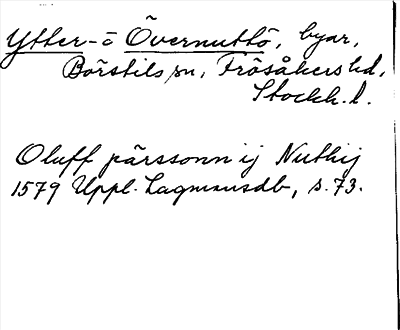 Ytter- o Övernuttö, byar,
Börstils sn, Frösåkers hd,
Stockh. l.
Oluff pärssonn ij Nuthij
1579 Uppl. Lagmansdb, s. 73.